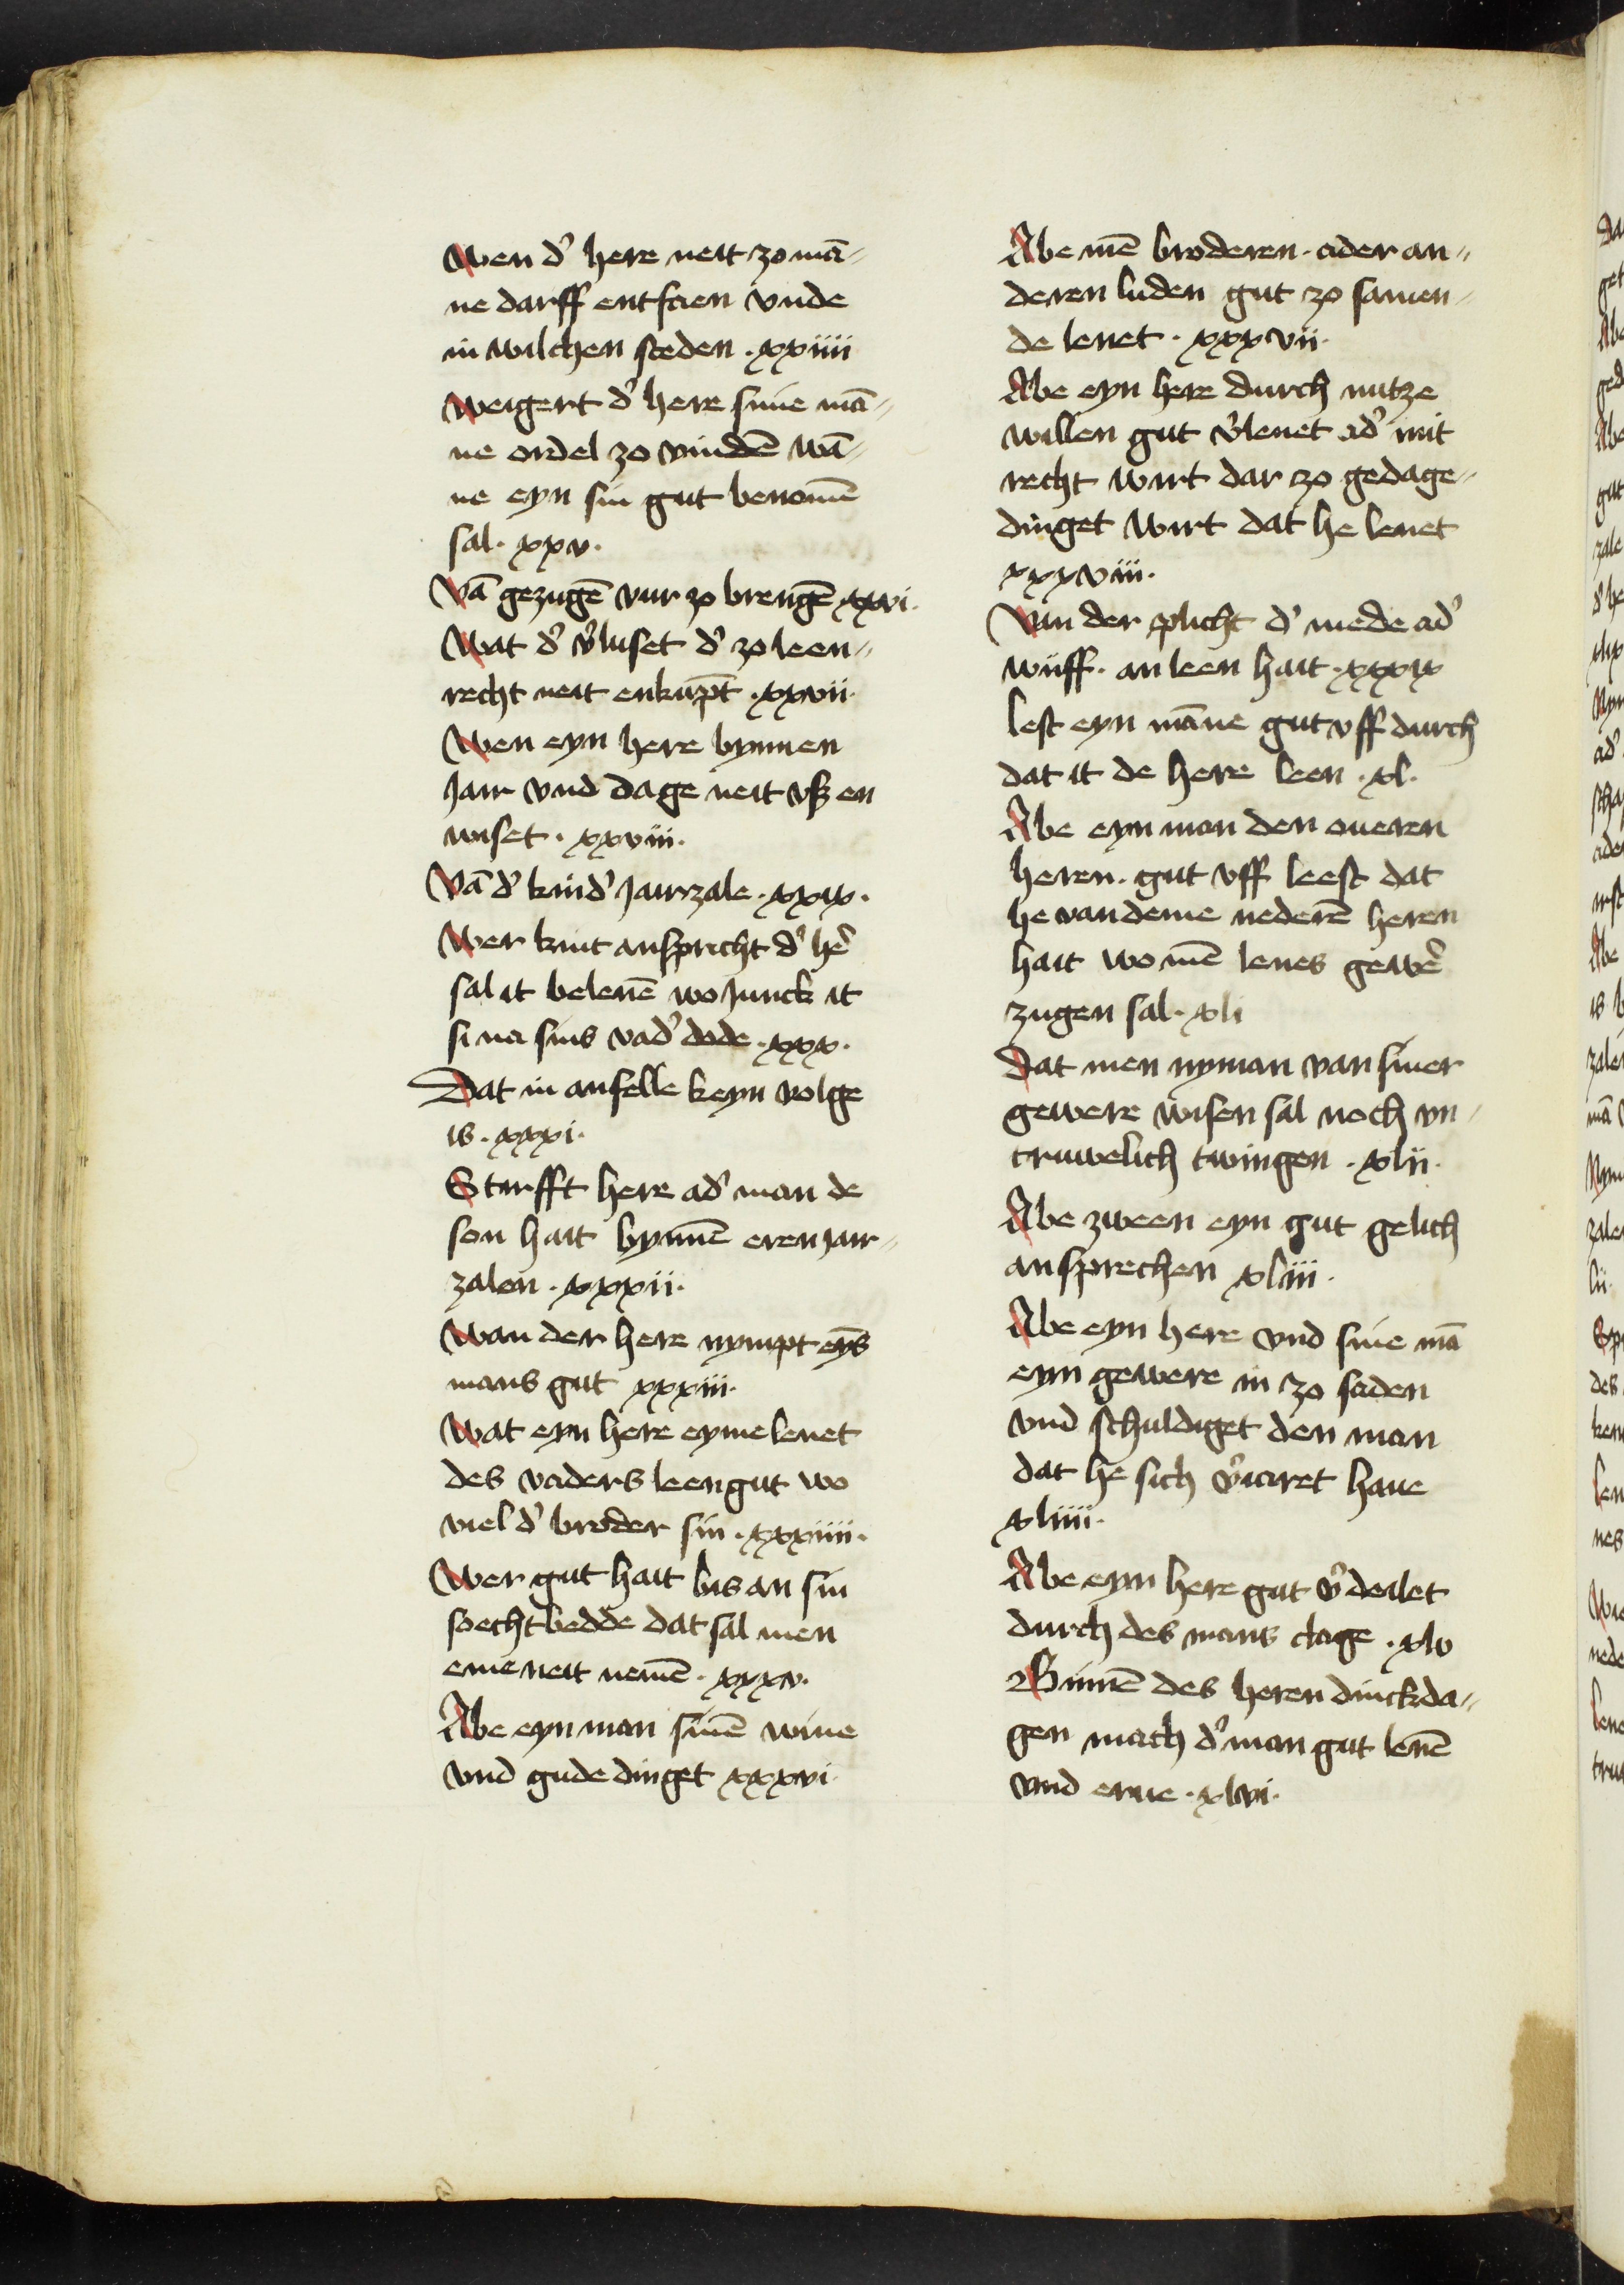 Wen d' here neit zo mā-
ne darff entfaen vnde
in wilchen steden . xxiiii
Weigert d' here sine mā-
ne ordel zo vindē wā-
ne eyn sin gut benomē
sal . xxv .
Vā gezugē vur zo brengē xxvi .
Wat d' v'luset d' zo leen-
recht neit enkūpt . xxvii .
Wen eyn here bynnen
Jair vnd dage neit vſz en
wiset . xxviii .
Vā d' kind' Jairzale . xxix .
Wer kint anspricht d' he'
sal it belenē wo Junck it
si na sins vad' dode . xxx .
Dat in anfelle keyn volge
is . xxxi .
Stirfft here ad' man de
son hait bynnē eren jair-
zalen . xxxii .
Wan der here nympt eyns
mans gut xxxiii .
Wat eyn here eyme lenet
des vaders leengut wo
viel d' broder sin . xxxiiii .
Wer gut hait bis an sin
soechtbedde dat sal men
eme neit nemē . xxxv .
Abe eyn man sinē wiue
vnd gude dinget xxxvi .
Abe mē broderen . ader an-
deren luden gut zo samen-
de lenet . xxxvii .
Abe eyn here durch nutze
willen gut v'lenet ad' mit
recht wirt dar zo gedage-
dinget wirt dat he lenet
xxxviii .
Van der plicht d' mede ad'
wiiff . an leen hait . xxxix
lest eyn māne gut vff durch
dat it de here leen . xl .
Abe eyn man den oueren
heren . gut vff leest dat
he van deme nederē heren
hait wo mē lenes gewe'
zugen sal . xli
Dat men nyman van siner
gewere wisen sal noch vn-
truwelich twingen . xlii .
Abe zween eyn gut gelich
ansprechen xliii .
Abe eyn here vnd sine mā
eyn gewere in zo saden
vnd schuldiget den man
dat he sich v'iaret haue
xliiii .
Abe eyn here gut v'deilet
durch des mans clage . xlv
Binnē des heren dinckda-
gen mach d' man gut lenē
vnd erue . xlvi .